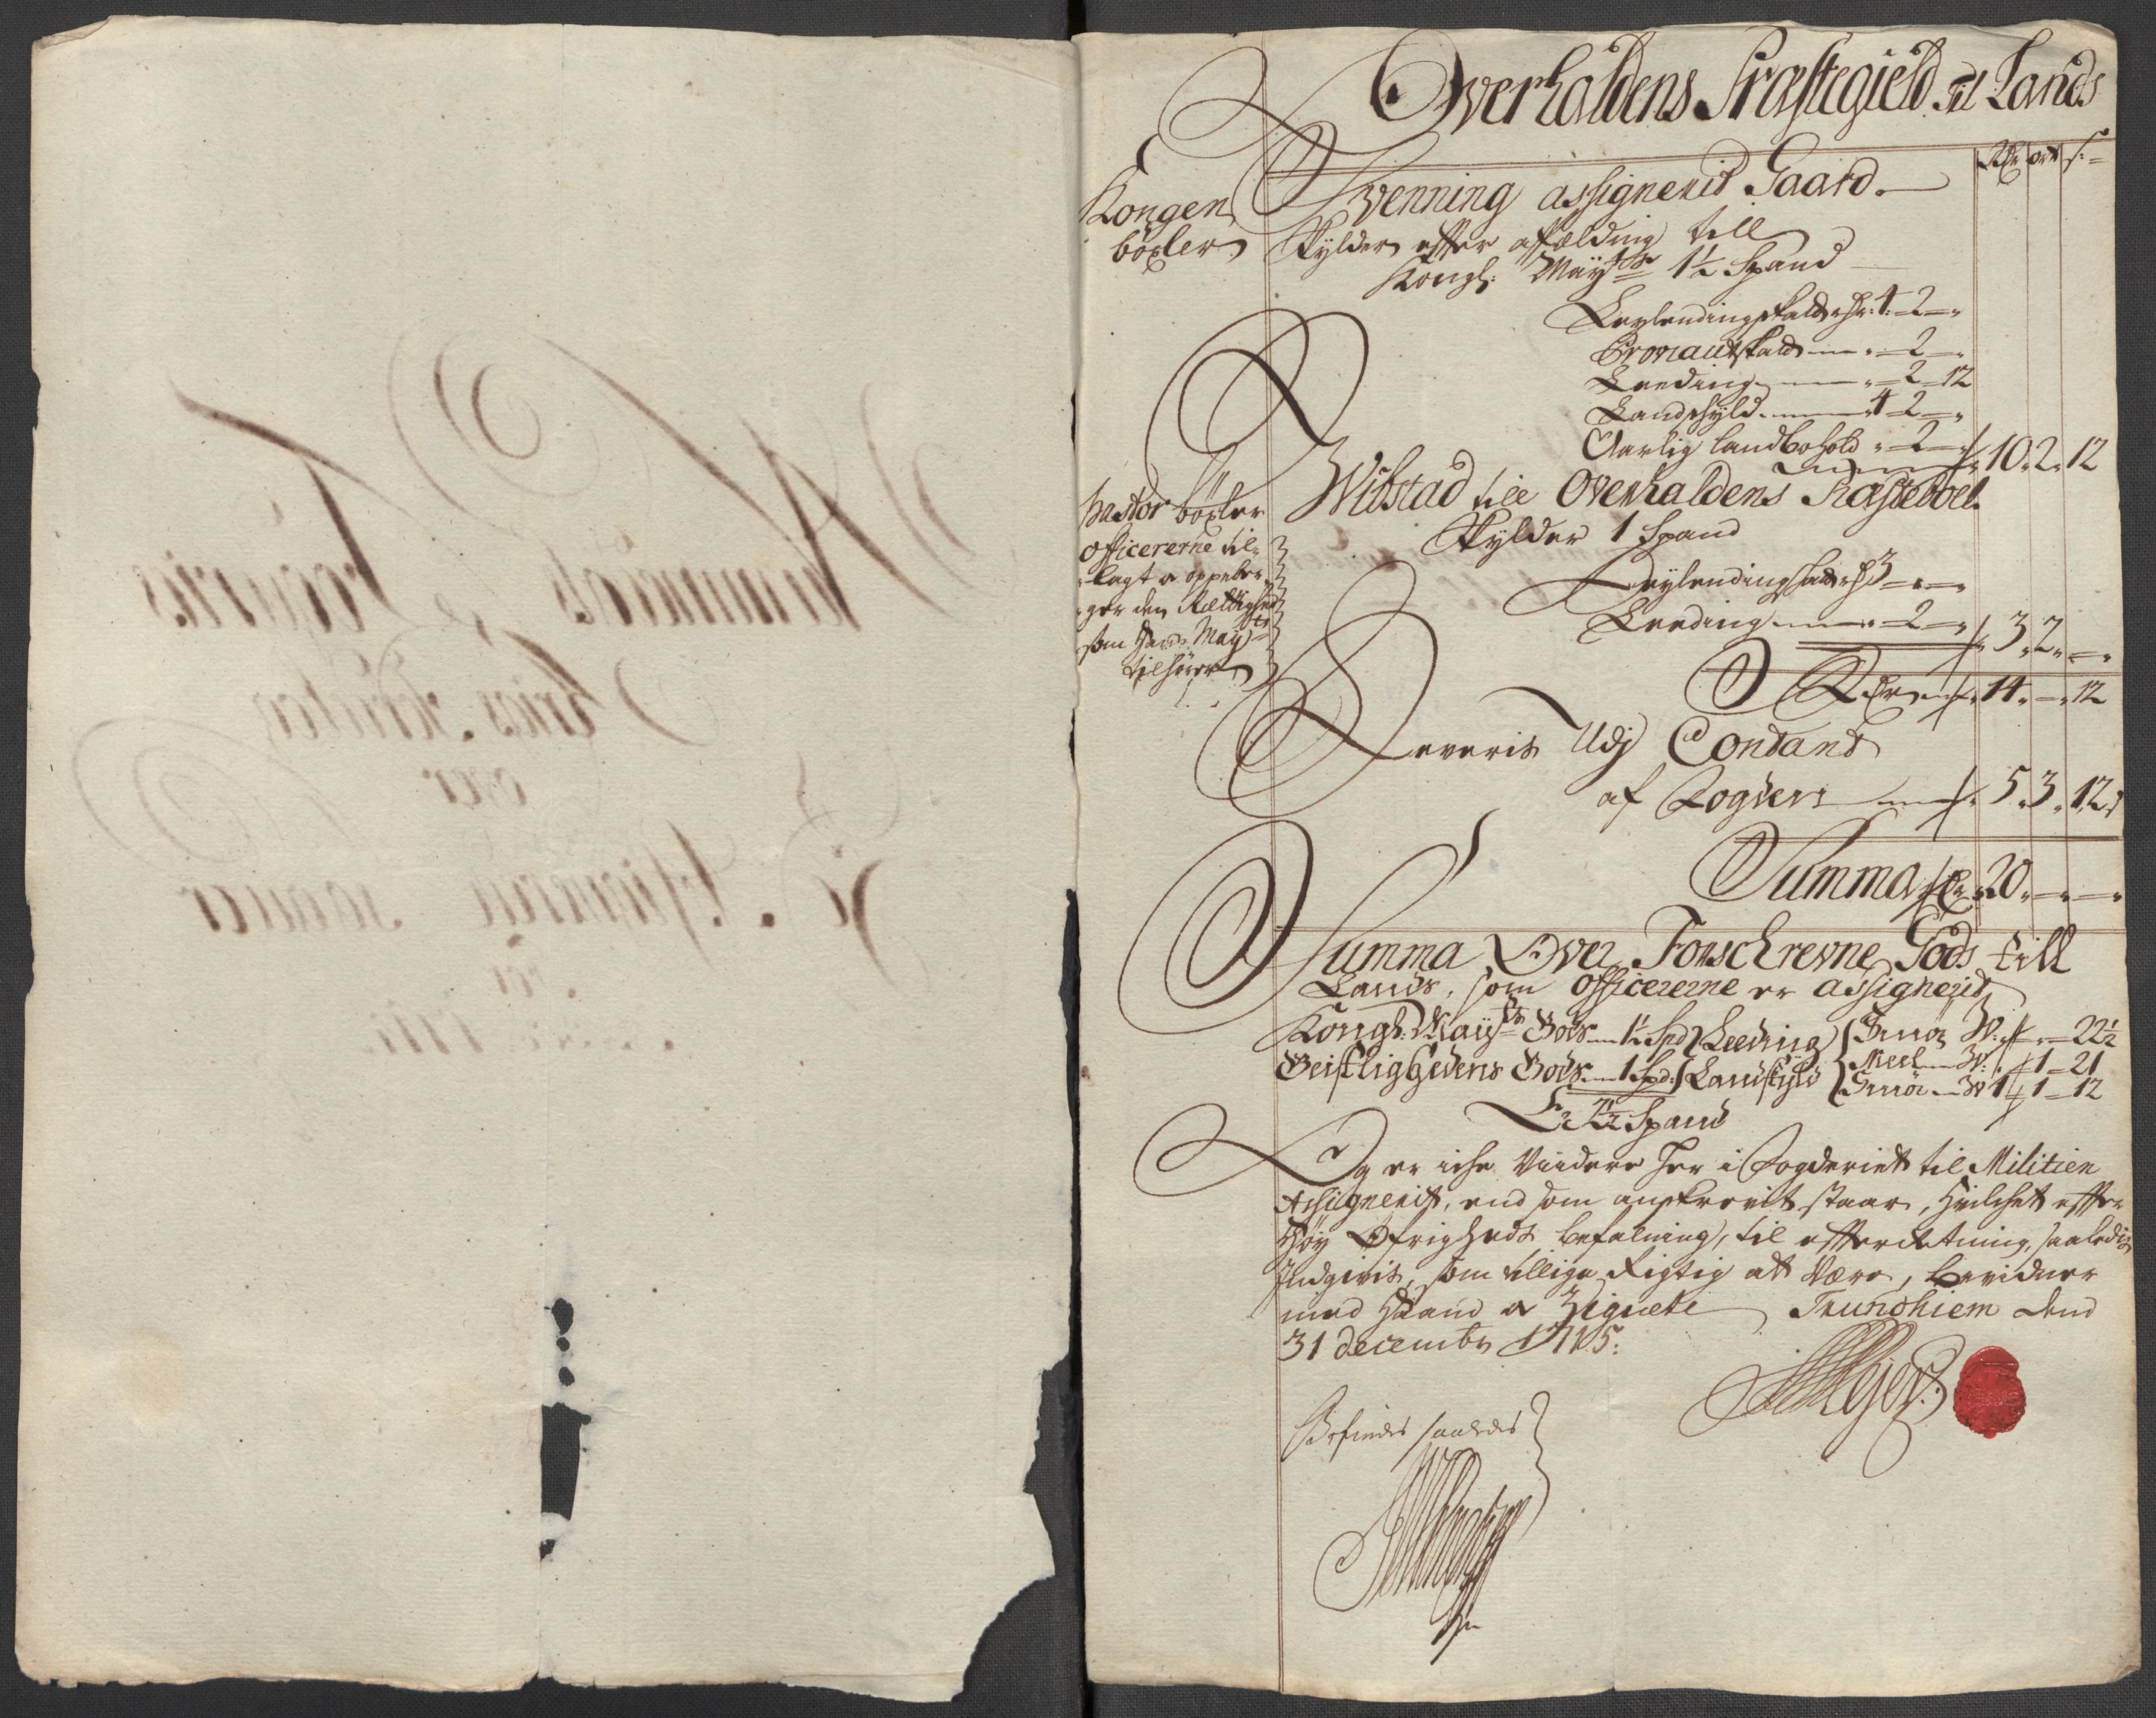 Overhaldens Præstegield til Lands
Rdr ort s:
Kongen
böxler
Svenning assignerit Gaard.
Skylder effter affælding till
Kongl: Mayts 1½ Spand
Leylendingskatt rdr: 4 - 2 -
Proviantskatt - 2 -
Leeding - 2 - 12
Landskyld 4 - 2 -
Aarlig landbohold - 2 - 10. 2. 12
Pastor böxler
officererne til-
lagt og oppebær-
ger den Rættighed
som Hans Mayts
tilhører
Wibstad till Overhaldens Præsteboel.
Skylder 1 Spand
Leylendingskatt rdr 3 - -
Leeding - 2 - 3. 2. -
Er 14. - 12
Leveris Udj Contant
af Fogden 5. 3. 12.
Summa 20. - -
Summa Over Forschrevne Gods till
Lands, som Officererne er assignerit
Kongl: Mayts Gods 1½ Spd Leeding Smör W: - 22½
Geistlighedens Gods 1 Spd: Landskyld Meel W: 1 - 21
Smör W 1 1 - 12
Er 2½ Spand
Og er iche Viidere her i Fogderiet til Militien
Assignerit, end som anskrevit staar, hvilchet effter
Høy Øfrigheds befalning, til effterretning, saaledis
Indgivis, som tillige Rigtig att Være, bevidner
med Haand og Zignete Trundhiem dend
31 decembr 1715:
Befindes saaledes